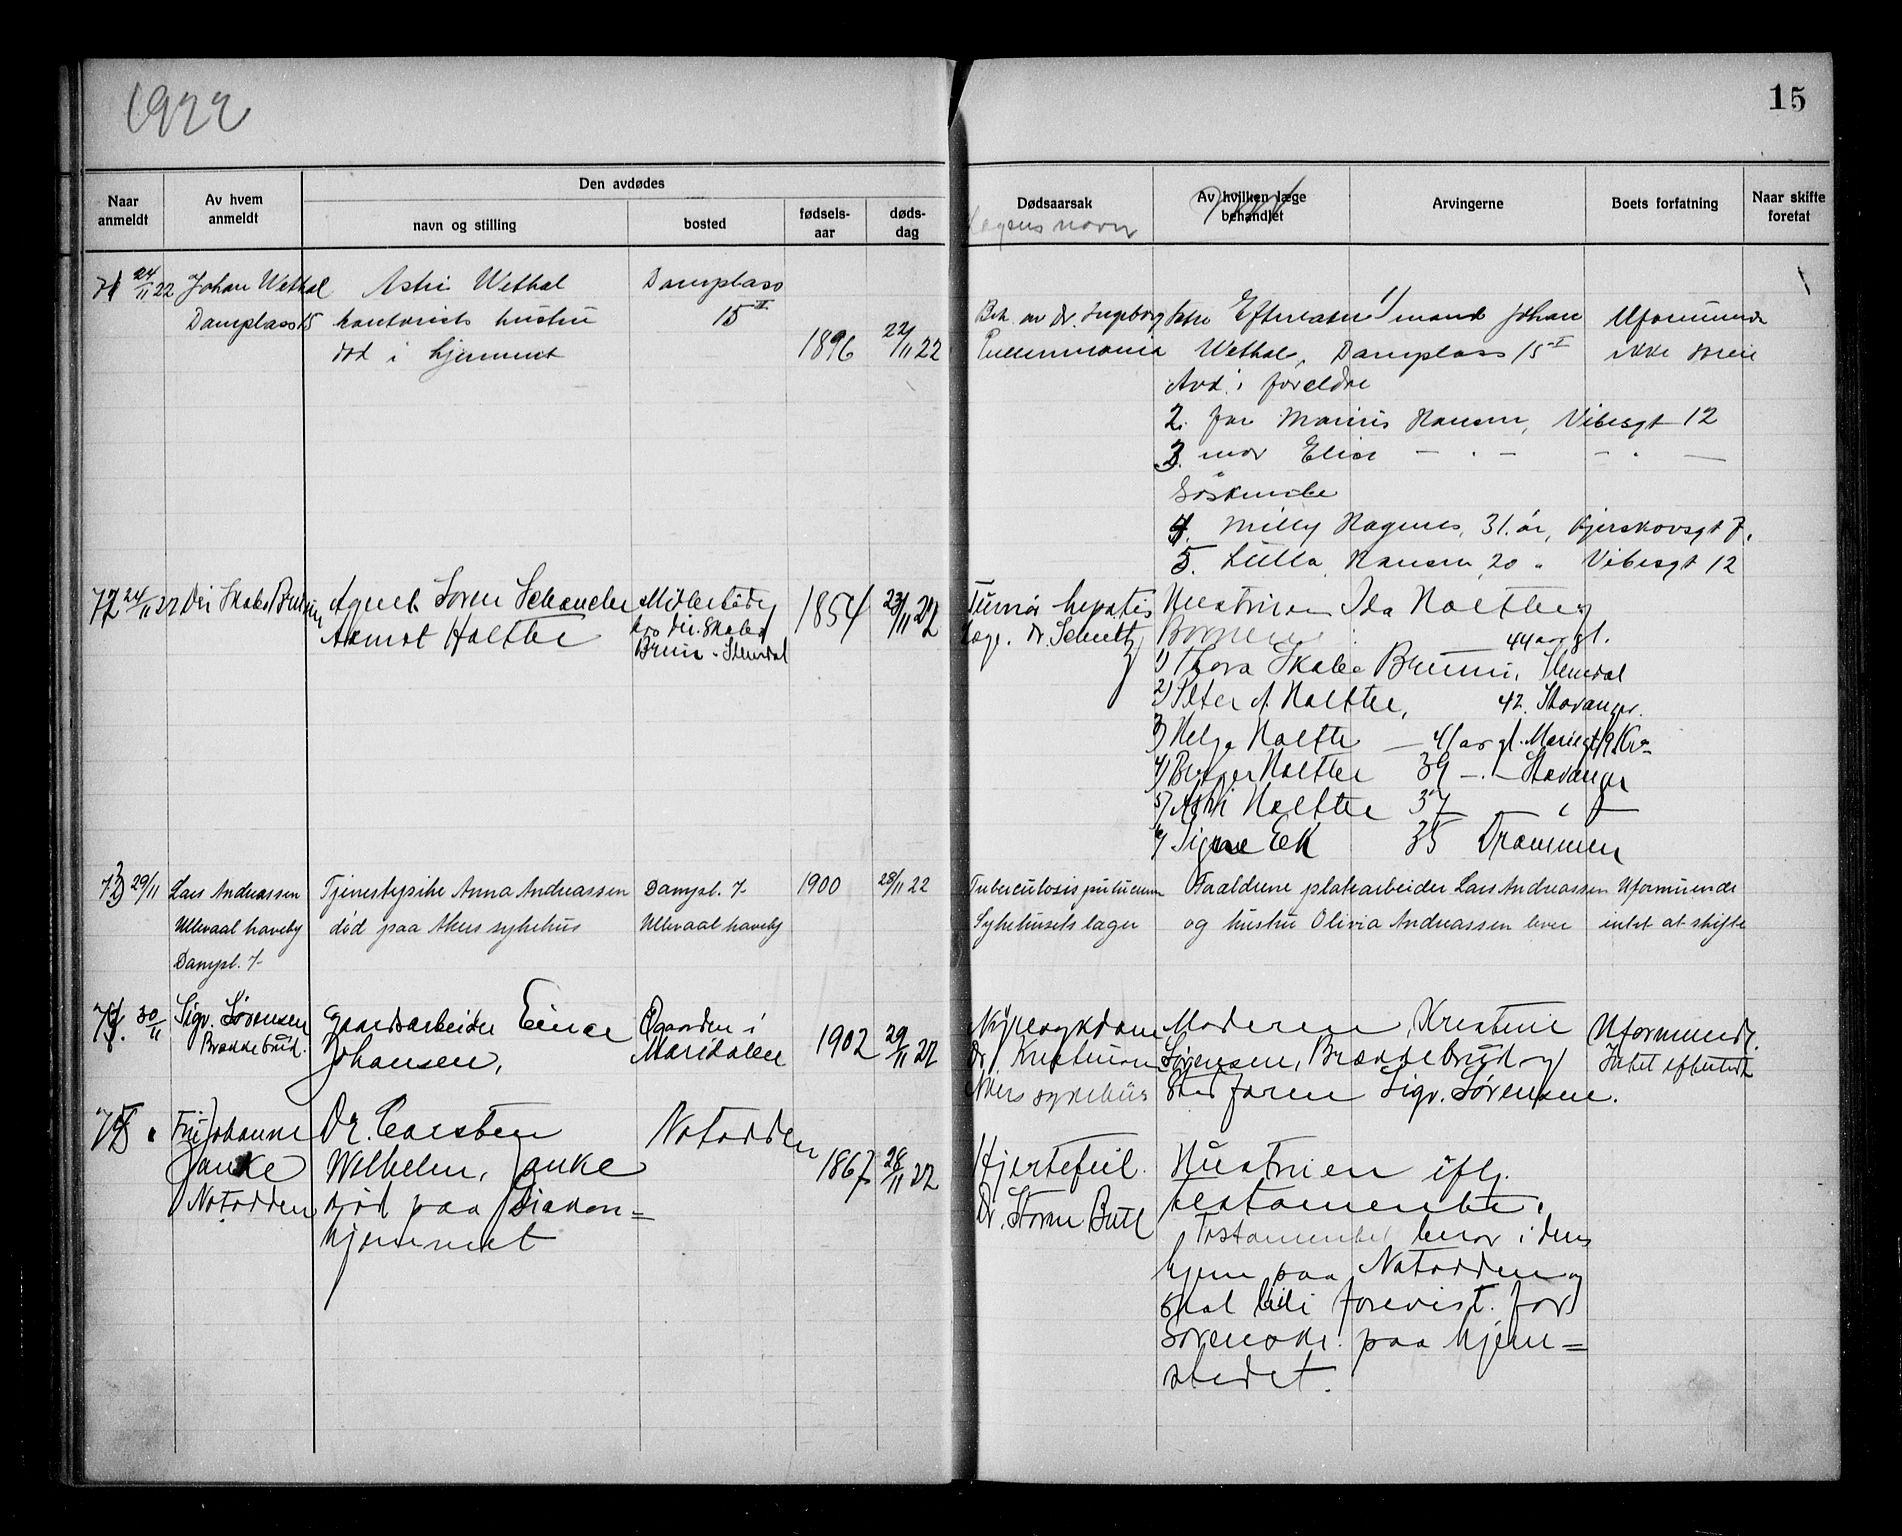 1922
15
Naar anmeldt
Av hvem anmeldt
Den avdødes
navn og stilling
bosted
fødsels-aar
døds-dag
Dødsaarsak
Lægens navn
Av hvilken læge behandlet
Arvingerne
Boets forfatning
Naar skifte foretat
71 24/11 22 Johan Wethal Astri Wethal Damplass
Damplass 15 kontorists hustru 15 II
død i hjemmet 1896 22/11 22
Beh. av Dr. Ingeborg Efterlater 1/ mand Johan Uformuende
Wethal, Damplass 15 I ikke
Avd. i foreldre
2. far Marius Hansen, Vibesgt 12
3. mor Elise — " — — " —
Søskende
4. Milly Hagenes, 31 år, Bjerskovsgt 7,
5. Lulla Hansen, 20 " Vibesgt 12
72 24/11 22 Dir Skabo Bruun Agnet Soren Schancke 1854 23/11 22
Aamot Holtte hos Dir. Skabo
Bruun - Slemdal
Tumor hepatis Hustruen Ida Holtte og
Læge. Dr. Schultz Børnene:
44 aar gl.
1) Thora Skabo Bruun, Slemdal
2) Peter A. Holtte, 42. Stavanger.
3) Helge Holtte — 41 aar gl. Mariegt 19. Kra
4) Birger Holtte 39 — " — Stavanger
5) Astri Holtte 37 — " —
6) Signe Eek 35 Drammen
73 29/11 Lars Andreassen Tjenestepike Anna Andreassen Dampl. 7 1900 28/11 22
Ullevaal haveby død paa Akers sykehus Ullevaal haveby
Dampl. 7
Tuberculosis pulmonum Foreldrene platearbeider Lars Andreassen Uformuende
Sykehusets læger og hustru Olivia Andreassen lever intet at skifte
74. 30/11 Sigv. Sørensen Gaardsarbeider Einar Øgaarden i 1902 29/11 22
Brækkebrud. Johansen, Maridalen
Nyresykdom Moderen, Kristine Uformuende.
Dr. Kristiansen Sørensen, Brækkebrud og Intet efterladt
Akers sykehus Stedfaren Sigv. Sørensen.
75 " Fru Johanne Dr. Carsten Notodden 1867 28/11 22
Janke Wilhelm Janke
Notodden død paa Diakon=
hjemmet
Hjertefeil. Hustruen ifg.
Dr. Storm Bull testamente.
Testamentet beror i dens
hjem paa Notodden og
skal bli forevist for
Sorensokr. paa hjem=
stedet.